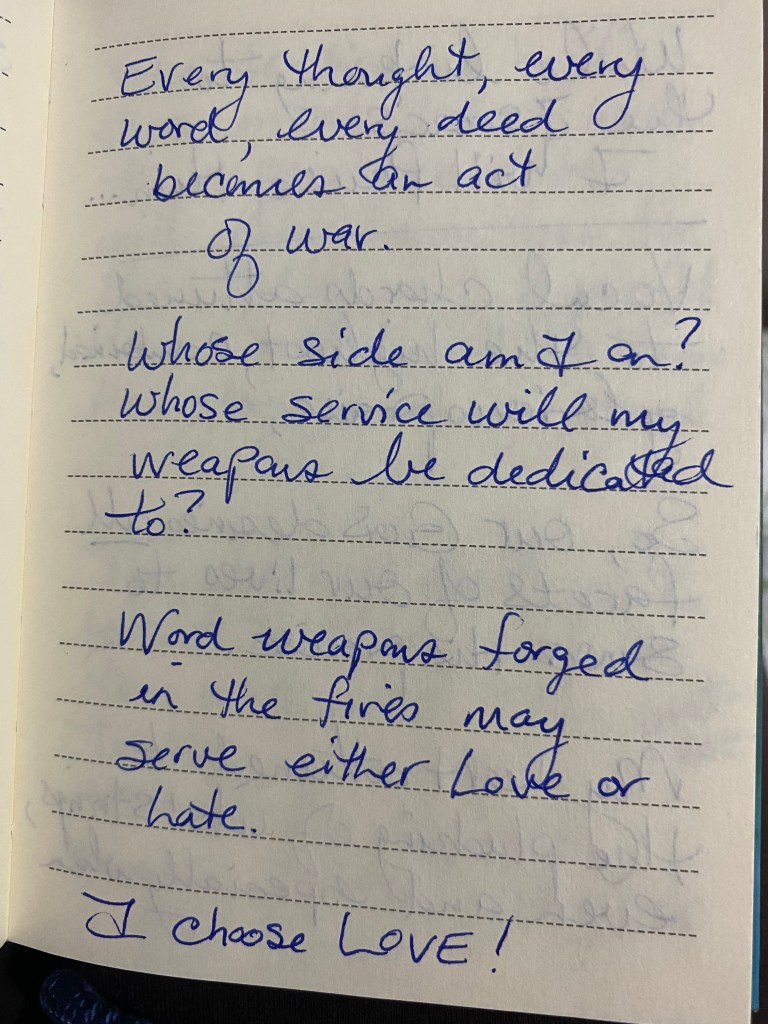 Every thought, every
word, every deed
becomes an act
of war.
Whose side am I on?
Whose service will my
weapons be dedicated
to?
Word weapons forged
in the fires may
serve either Love or
hate.
I choose LOVE!